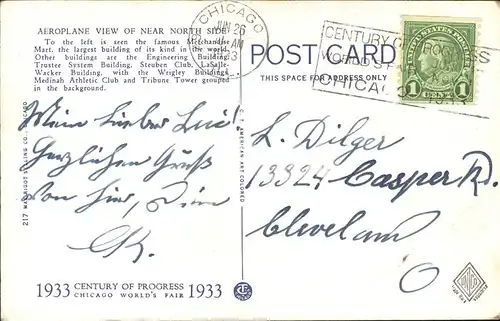 AEROPLANE VIEW OF NEAR NORTH SIDE
To the left is seen the famous Merchandise
Mart, the largest building of its kind in the world.
Other buildings are the Engineering Building,
Trustee System Building, Steuben Club, LaSalle-
Wacker Building, with the Wrigley Buildings,
Medinah Athletic Club and Tribune Tower grouped
in the background.
CHICAGO
JUN 26
AM
CENTURY OF PROGRESS
WORLD'S
CHICAGO
UNITED STATES POSTAGE
1 CENT 1
POST CARD
THIS SPACE FOR ADDRESS ONLY
Mein lieber
Herzlichen Gruß
von hier,
L. Dilger
13324 Casper Rd.
Cleveland
O
217
CO., CHICAGO
C. T. AMERICAN ART COLORED
1933 CENTURY OF PROGRESS 1933
CHICAGO WORLD'S FAIR